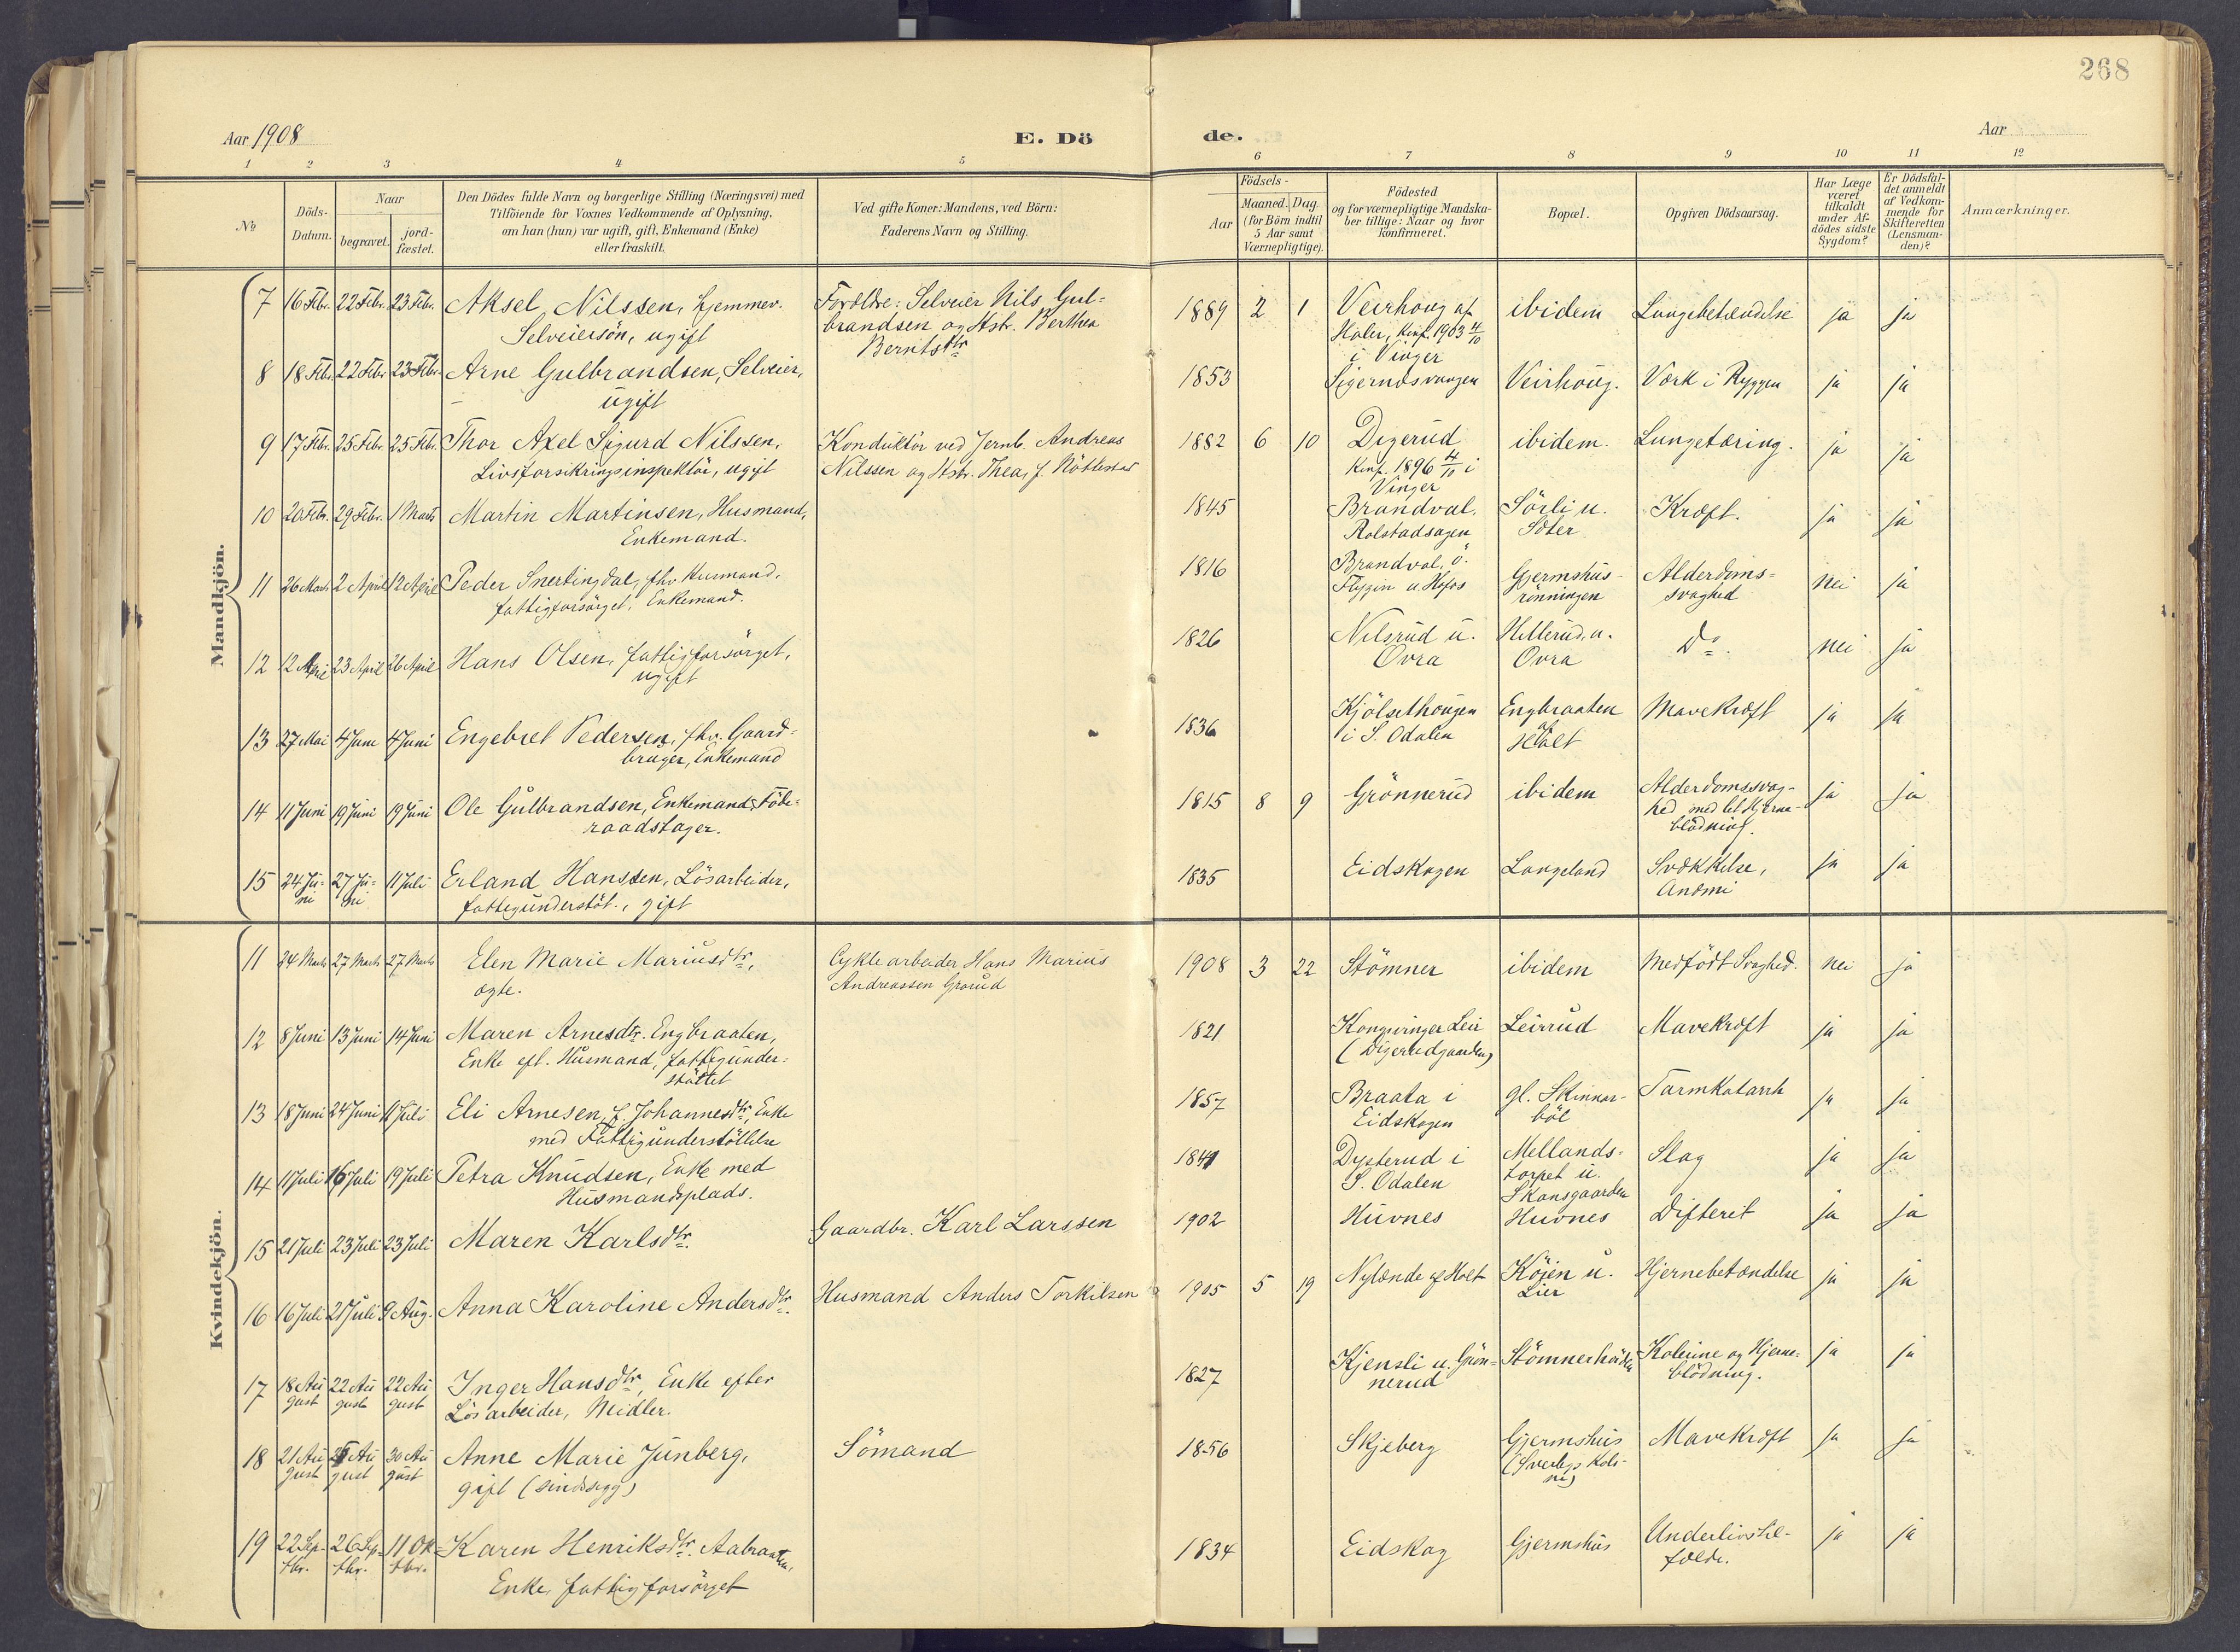 268
Aar 1908
E. Dö
de.
Aar
1 2 3 4 5 6 7 8 9 10 11 12
No
Döds-
Datum.
Naar
begravet.
jord-
fæstet.
Den Dödes fulde Navn og borgerlige Stilling (Næringsvei) med
Tilföiende for Voxnes Vedkommende af Oplysning,
om han (hun) var ugift, gift, Enkemand (Enke)
eller fraskilt.
Ved gifte Koner: Mandens, ved Börn:
Faderens Navn og Stilling.
Födsels-
Aar
Maaned. Dag.
(for Börn indtil
5 Aar samt
Værnepligtige).
Födested
og for værnepligtige Mandska-
ber tillige: Naar og hvor
konfirmeret.
Bopæl.
Opgiven Dödsaarsag.
Har Læge
været
tilkaldt
under Af-
dödes sidste
Sygdom?
Er Dödsfal-
det anmeldt
af Vedkom-
mende for
Skifteretten
(Lensman-
den)?
Anmærkninger.
Mandkjön.
7 16 Febr. 22 Febr. 23 Febr. Aksel Nilssen, hjemmev.
Selveiersön, ugift
Forældre: Selveier Nils Gul-
brandsen og Hstr. Berthea
Berntsdtr
1889 2 1 Veirhoug af
Holer, Konf. 1903 4/10
i Vinger
ibidem Lungebetændelse ja ja
8 18 Febr. 22 Febr 23 Febr. Arne Gulbrandsen, Selveier,
ugift
1853 Sigernæsvangen Veirhoug. Værk i Ryggen ja ja
9 17 Febr. 25 Febr. 25 Febr. Thor Axel Sigurd Nilssen,
Livsforsikringsinspektör, ugift
Konduktör ved Jernb. Andreas
Nilssen og Hstr. Thea, f. Nöttestad
1882 6 10 Digerud
Konf. 1896 4/10 i
Vinger
ibidem. Lungetæring. ja ja
10 20 Febr. 29 Febr. 1 Marts Martin Martinsen, Husmand,
Enkemand.
1845 Brandval,
Rolstadsagen
Sörli u.
Sæter
Kræft. ja ja
11 26 Marts 2 April 12 April Peder Snertingdal, fhv. Husmand,
fattigforsörget, Enkemand.
1816 Brandval, ö.
Flygin u. Hofos
Gjermshus-
rönningen
Alderdoms-
svaghed
nei ja
12 12 April 23 April 26 April Hans Olsen, fattigforsörget,
ugift
1826 Nilsrud u.
Overa
Hillerud u.
Overa
Do. nei ja
13 27 Mai 4 Juni 4 Juni Engebret Pedersen, fhv. Gaard-
bruger, Enkemand
1836 Kjölsethougen
i S. Odalen
Engbraaten
af
Holt
Mavekræft ja ja
14 11 Juni 19 Juni 19 Juni Ole Gulbrandsen, Enkemand, Föde-
raadstager.
1815 8 9 Grönnerud ibidem Alderdomssvag-
hed med let Hjerne-
blödning.
ja ja
15 24 Ju-
ni
27 Ju-
ni
11 Juli Erland Hanssen, Lösarbeider,
fattigunderstöt., gift
1835 Eidskogen Langeland Svækkelse,
Anæmi
ja ja
Kvindekjön.
11 24 Marts 27 Marts 27 Marts Elen Marie Mariusdtr,
ægte.
Cyklearbeider Hans Marius
Andreassen Grorud
1908 3 22 Stömner ibidem Medfödt Svaghed. nei ja
12 8 Juni 13 Juni 14 Juni Maren Arnesdtr. Engbraaten,
Enke eft. Husmand, fattigunder-
stöttet
1821 Kongsvinger Leir
(Digerudgaarden)
Leirud Mavekræft ja ja
13 18 Juni 24 Juni 11 Juli Eli Arnesen, f. Johannesdtr, Enke
med Fattigunderstöttelse
1857 Braata i
Eidskogen
gl. Skinnar-
böl
Tarmkatarrh ja ja
14 11 Juli 16 Juli 19 Juli Petra Knudsen, Enke med
Husmandsplads.
1841 Dysterud i
S. Odalen
Mellands-
torpet u.
Skansgaarden
Slag ja ja
15 21 Juli 23 Juli 23 Juli Maren Karlsdtr. Gaardbr. Karl Larssen
1902 Huvnes Huvnes Difterit ja ja
16 16 Juli 21 Juli 9 Aug. Anna Karoline Andersdtr. Husmand Anders Torkilsen
1905 5 19 Nylænde af Holt Köjen u.
Lier
Hjernebetændelse ja ja
17 18 Au
gust
22 Au
gust
22 Au
gust
Inger Hansdtr, Enke efter
Lösarbeider, Midler.
1827 Kjensli u. Grön-
nerud
Stömnerhöiden Kolerine og Hjerne-
blödning.
ja ja
18 21 Au
gust
Au
gust
30 Au
gust
Anne Marie Junberg,
gift (sindssyg)
Sömand
1856 Skjeberg Gjermshus
Mavekræft ja ja
19 22 Sep-
tbr.
26 Sep-
tbr.
11 Ok-
tbr.
Karen Henriksdtr. Aabraaten,
Enke, fattigforsörget
1834 Eidskog Gjermshus Underlivstil-
fælde.
ja ja